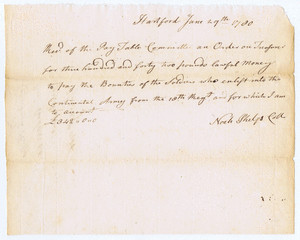 Hartford June 29th 1780
Recd of the Pay Table Committe an Order on Treasurer
for three hundred and forty two pounds Lawful Money
to pay the Bounties of the Soldiers who enlist into the
Continental Army from the 18th Regt and for which I am
to account
£342..0..0
Noah Phelps Colo